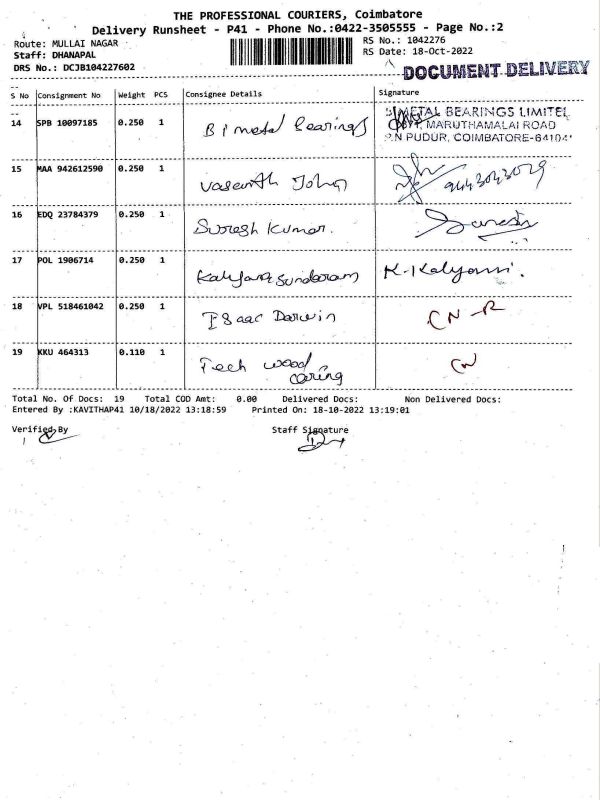 THE PROFESSIONAL COURIERS, Coimbatore
Delivery Runsheet - P41 - Phone No.:0422-3505555 - Page No.:2
Route: MULLAI NAGAR RS No.: 1042276
Staff: DHANAPAL RS Date: 18-Oct-2022
DRS No.: DCJB104227602
DOCUMENT DELIVERY
S No Consignment No Weight PCS Consignee Details Signature
14 SPB 10097185 0.250 1 Bimetal Bearings
BIMETAL BEARINGS LIMITED
MARUTHAMALAI ROAD
P.N PUDUR, COIMBATORE-641041
15 MAA 942612590 0.250 1 Vasanth John
16 EDQ 23784379 0.250 1 Suresh Kumar. Suresh
17 POL 1906714 0.250 1 Kalyanasundaram K. Kalyani.
18 VPL 518461042 0.250 1 Isaac Darwin CN-R
19 KKU 464313 0.110 1 Tech wood caring CN
Total No. Of Docs: 19 Total COD Amt: 0.00 Delivered Docs: Non Delivered Docs:
Entered By :KAVITHAP41 10/18/2022 13:18:59 Printed On: 18-10-2022 13:19:01
Verified By Staff Signature